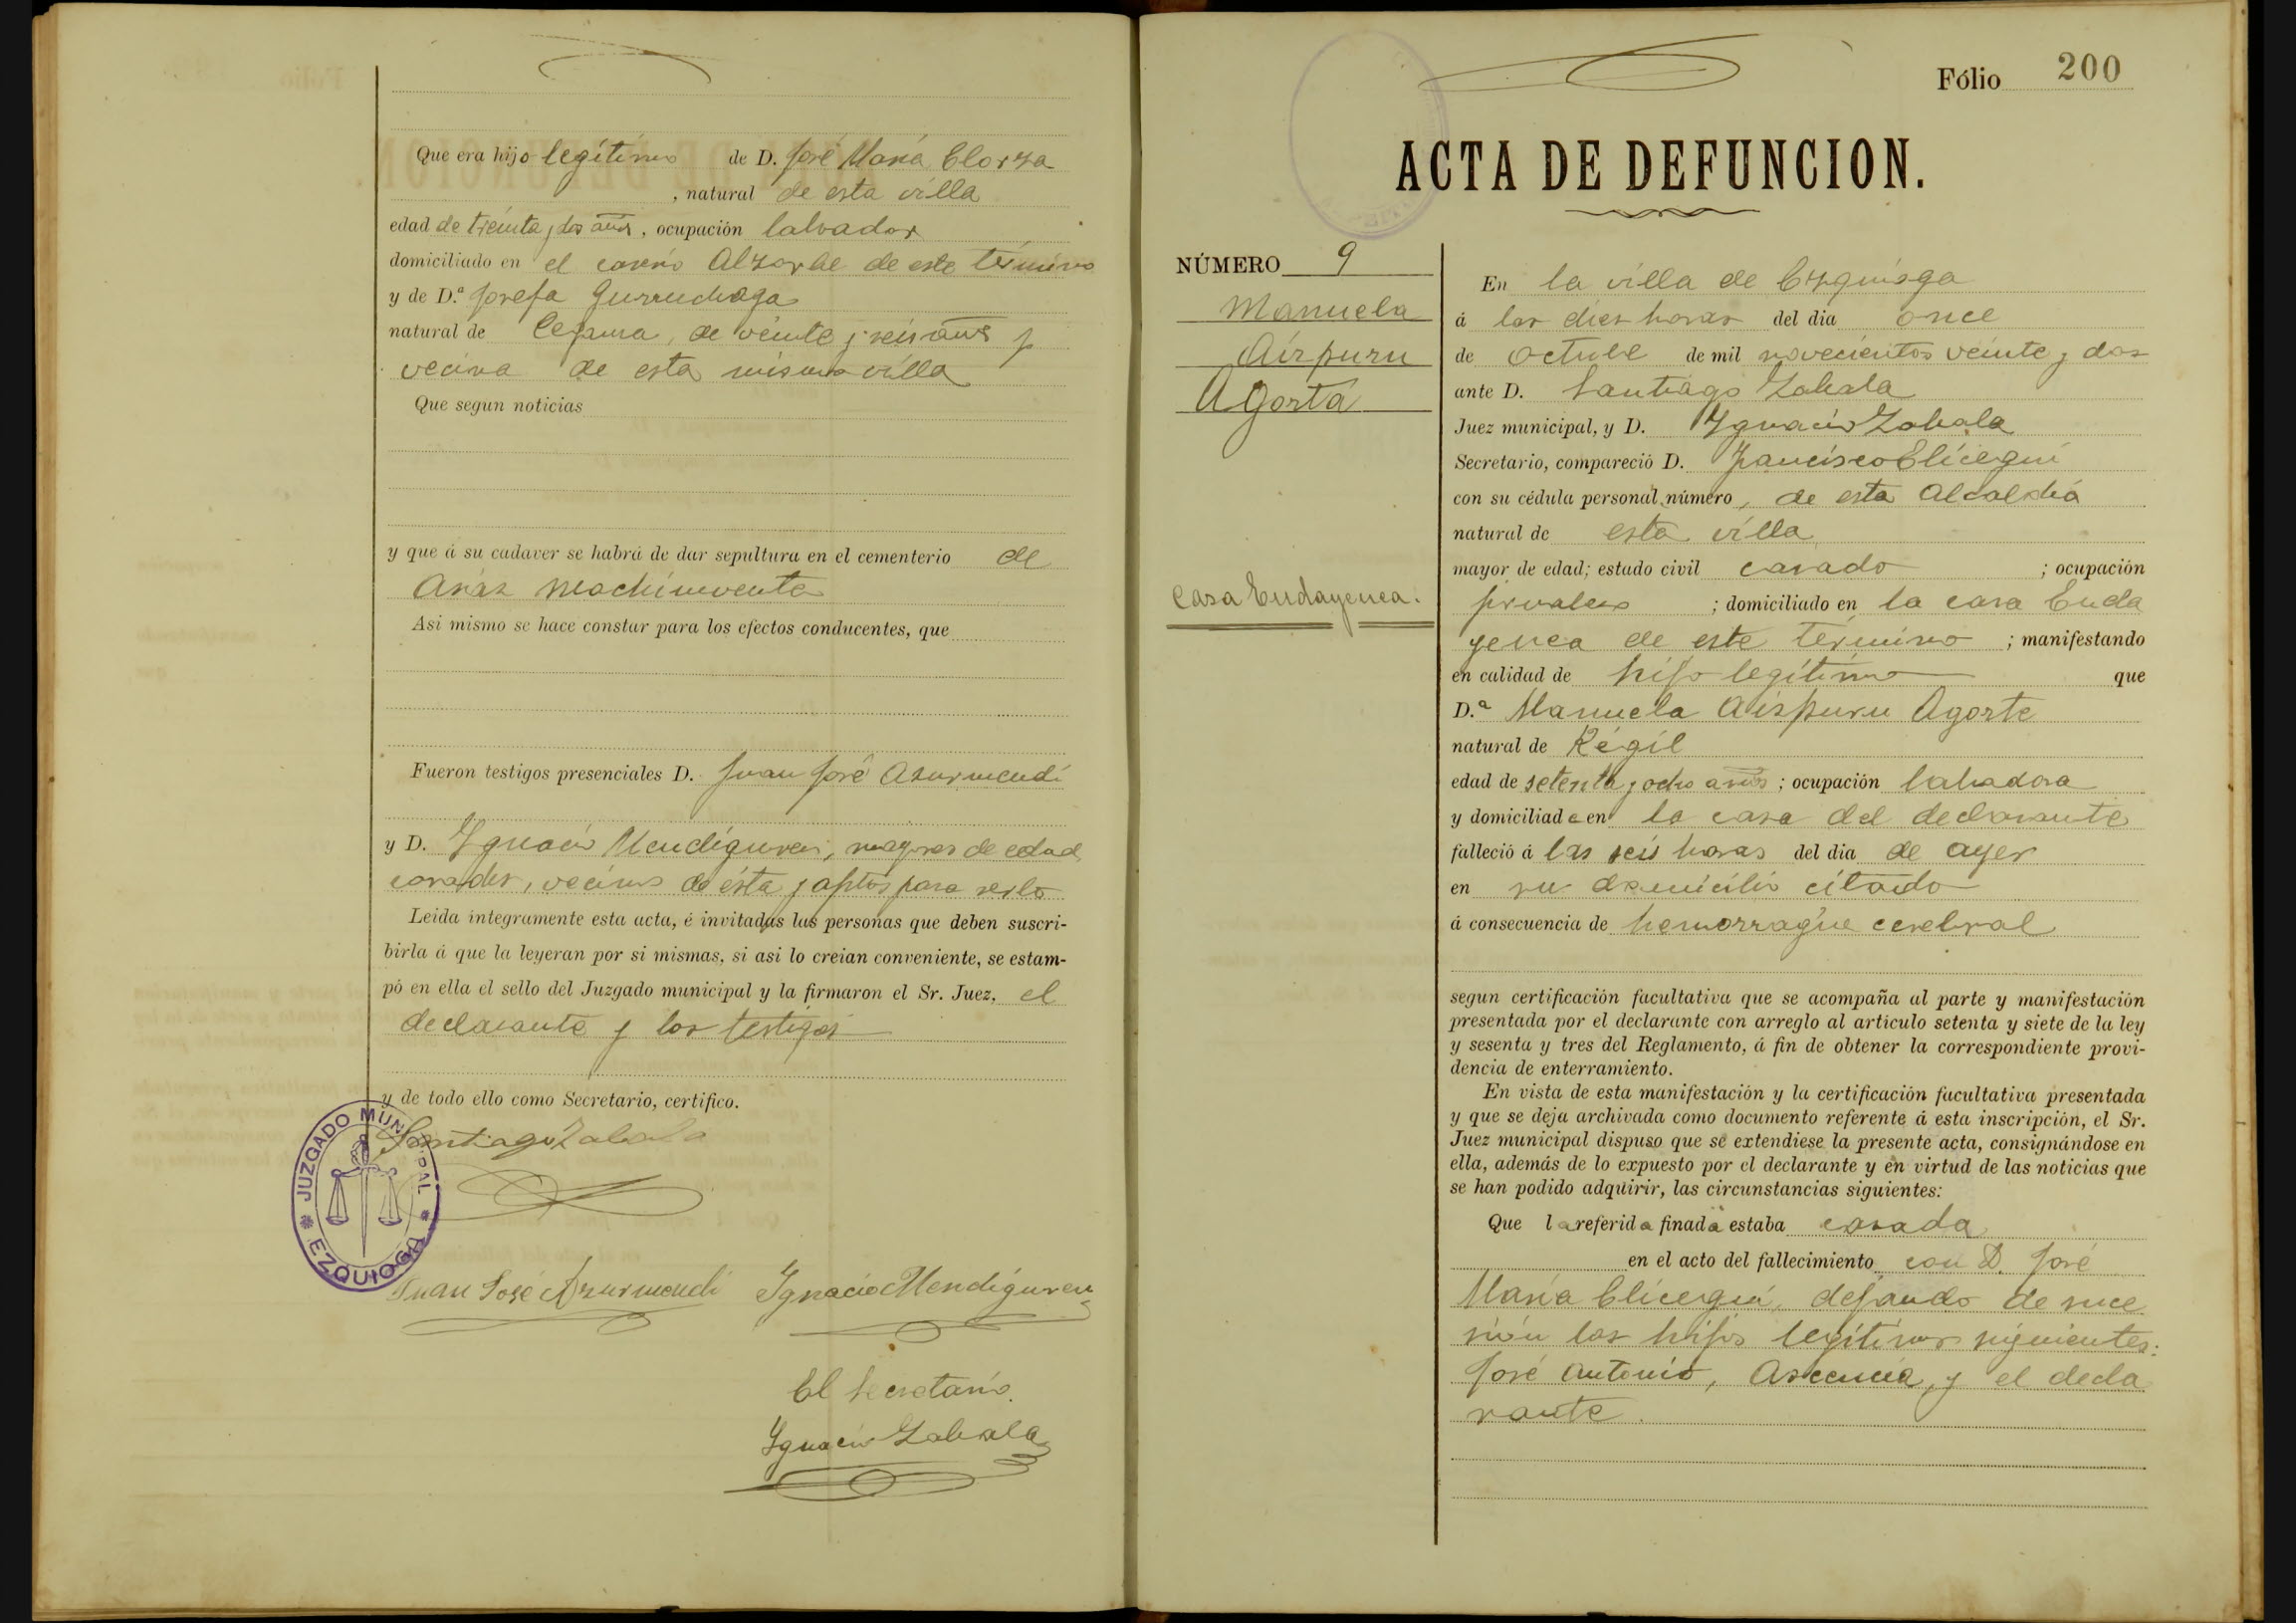 Que era hijo legítimo de D. José María Elorza
, natural de esta villa
edad de treinta y dos años, ocupación labrador
domiciliado en el caserío Alzarbe de este término
y de D.ª Josefa Gurruchaga
natural de Cegama, de veinte y seis años y
vecina de esta misma villa
Que segun noticias
y que á su cadaver se habrá de dar sepultura en el cementerio de
Anduaz
Asi mismo se hace constar para los efectos conducentes, que
Fueron testigos presenciales D. Juan José Azurmendi
y D. Ygnacio Mendiguren, mayores de edad,
casados, vecinos de ésta y aptos para serlo
Leida integramente esta acta, é invitadas las personas que deben suscri-
birla á que la leyeran por si mismas, si asi lo creian conveniente, se estam-
pó en ella el sello del Juzgado municipal y la firmaron el Sr. Juez, el
declarante y los testigos
y de todo ello como Secretario, certifico.
Santiago Zabala
JUZGADO MUNICIPAL
EZQUIOGA
Juan José Azurmendi Ygnacio Mendiguren
El Secretario.
Ygnacio Zabala
Fólio 200
ACTA DE DEFUNCION.
NÚMERO 9
Manuela
Aizpuru
Agorta
Casa Endayenea.
En la villa de Ezquioga
á las diez horas del dia once
de Octubre de mil novecientos veinte y dos
ante D. Santiago Zabala
Juez municipal, y D. Ygnacio Zabala
Secretario, compareció D. Francisco Elicegui
con su cédula personal número, de esta Alcaldía
natural de esta villa
mayor de edad; estado civil casado ; ocupación
; domiciliado en la casa Enda
yenea de este término ; manifestando
en calidad de hijo legítimo que
D.ª Manuela Aizpuru Agorte
natural de Régil
edad de setenta y ocho años ; ocupación labradora
y domiciliada en la casa del declarante
falleció á las seis horas del dia de ayer
en su domicilio citado
á consecuencia de hemorragia cerebral
segun certificación facultativa que se acompaña al parte y manifestación
presentada por el declarante con arreglo al articulo setenta y siete de la ley
y sesenta y tres del Reglamento, á fin de obtener la correspondiente provi-
dencia de enterramiento.
En vista de esta manifestación y la certificación facultativa presentada
y que se deja archivada como documento referente á esta inscripción, el Sr.
Juez municipal dispuso que se extendiese la presente acta, consignándose en
ella, además de lo expuesto por el declarante y en virtud de las noticias que
se han podido adquirir, las circunstancias siguientes:
Que la referida finada estaba casada
en el acto del fallecimiento con D. José
María Elicegui, dejando de suce
sión los hijos legítimos siguientes:
José Antonio, Ascencia, y el decla
rante.